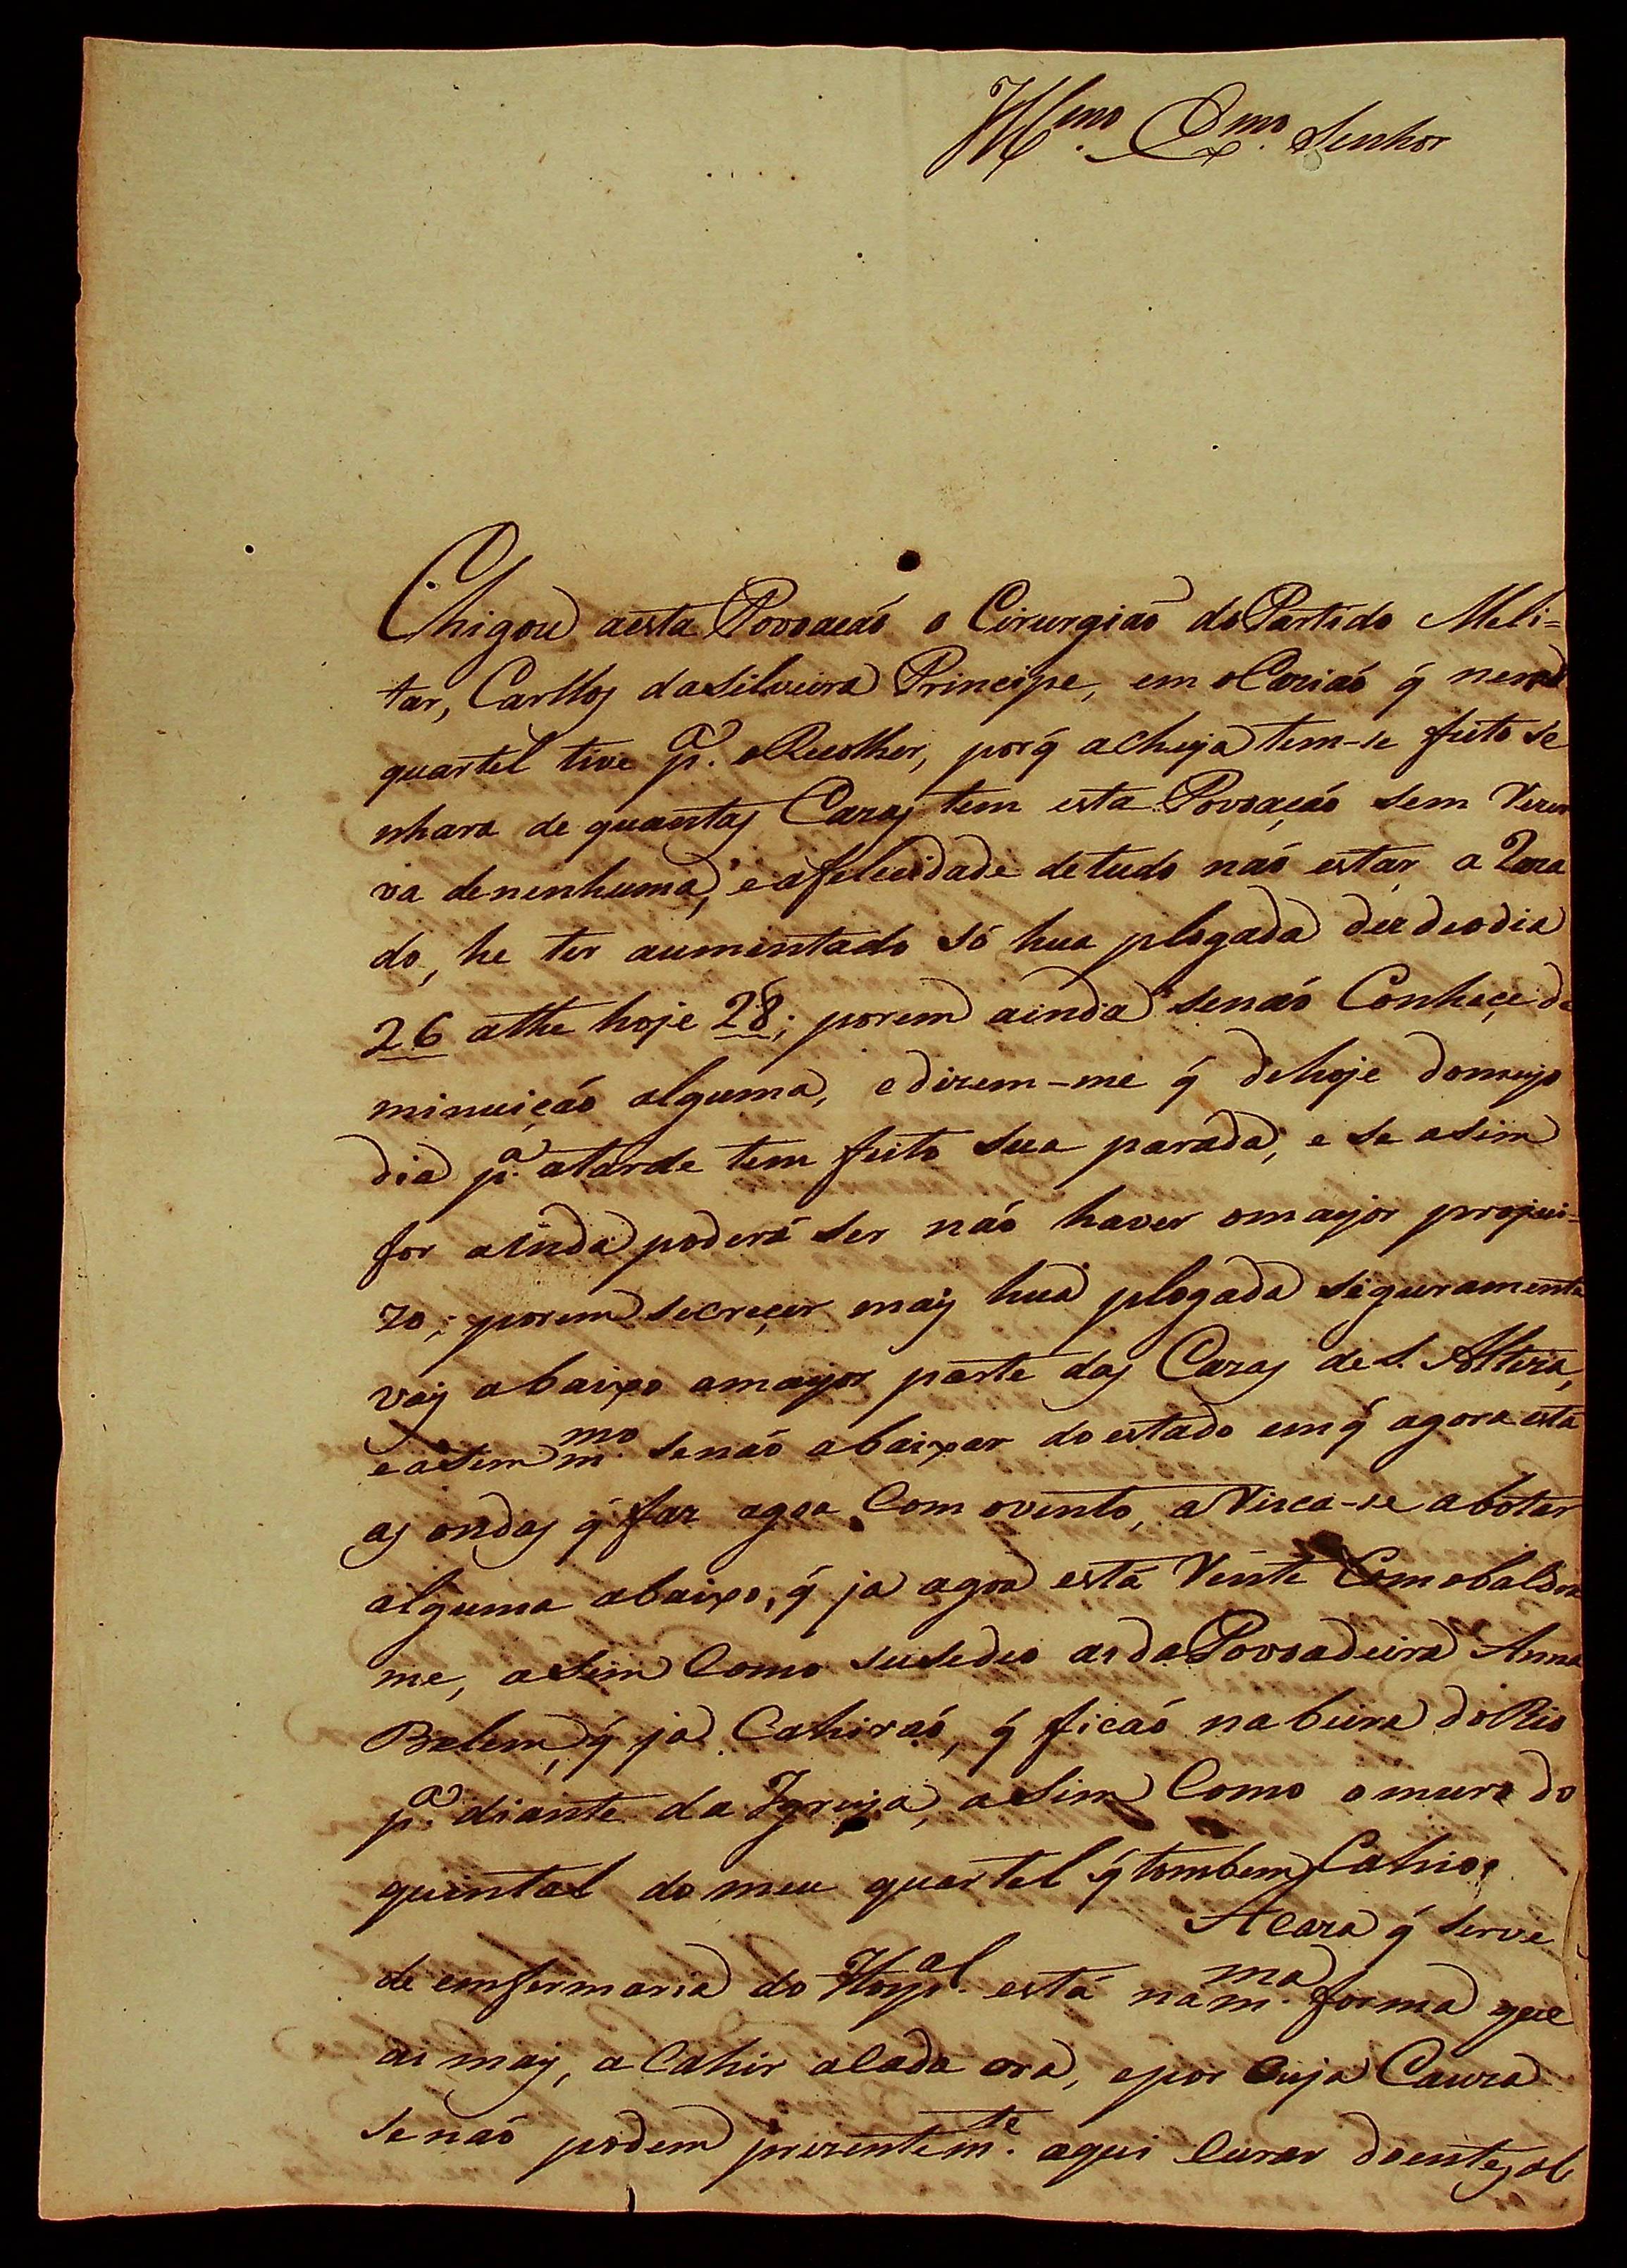 Illmo. Exmo. Senhor
Chigou aesta Povoação o Cirurgião do Partido Meli=
tar, Carllos da Silveira Principe, em o Caziaõ q̃ nem
quartel tive pa. o Recolher, porq̃ a cheya tem-se feito se
nhara de quantas Cazas tem esta Povoaçaõ sem Rezer
va de nenhuma, e a felecidade de tudo naõ estar a Raza
do, he ter aumentado só hua plegada desde o dia
26 athe hoje 28; porem ainda se naõ Conheçe de
minuiçaõ alguma, e dizem-me q̃ de hoje do meyo
dia pa. a tarde tem feito sua parada, e se asim
for ainda poderá ser naõ haver o mayor projui=
zo; porem se creçer mais hua plegada siguramente
vaj abaixo a mayor parte das Cazas de S. Alteza,
e asim mmo. se naõ abaixar do estado em q̃ agora está
as ondas q̃ faz agoa Com o vento, a Risca-se a botar
alguma abaixo, q̃ ja agoa está Rente Com o baldra
me, asim Como susedeo as da Povoadeira Anna
Belem, q̃ ja Cahiraõ, q̃ ficaõ na beira do Rio
pa. diante da Igreija, asim Como o muro do
quintal do meu quartel q̃ tombem Cahio.
A caza q̃ serve
de emfermaria do Hospal. está na mma. forma que
as mais, a Cahir a Cada ora, e por Cuja Cauza
se naõ podem prizentemte. aqui Curar doentes al